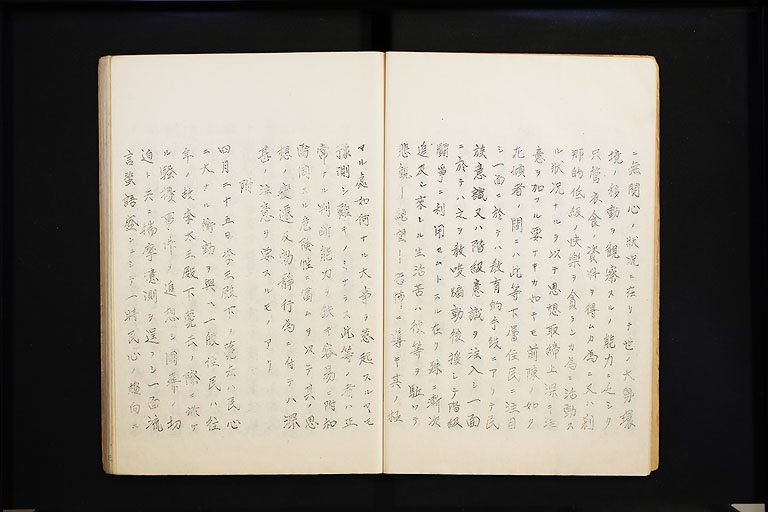 ニ無関心ノ状況ニ在リテ世ノ大勢環
境ノ移動ヲ観察スルノ能力ニ乏シク
只管衣食ノ資料ヲ得ムカ為ニ又ハ刹
那的低級ノ快楽ヲ貪ランカ為ニ活動ス
ル状況ナルヲ以テ思想取締上深キ注
意ヲ加フル要ナキカ如キモ前陳ノ如ク
左傾者ノ間ニハ此等下層住民ニ注目
シ一面ニ於テハ教育的手段ニアリテ民
族意識又ハ階級意識ヲ注入シ一面
ニ於テハ之ヲ教唆煽動後援シテ階級
闘争ニ利用セムトスル在リ殊ニ漸次
追及シ来レル生活苦ハ彼等ヲ駆リテ
悲観―絶望―恐怖ニ導キ其ノ極
マル処如何ナル大事ヲ惹起スルヤモ
予測シ難キノミナラス此等ノ者ハ正
常ナル判断能力ヲ欠キ容易ニ附和
雷同スル危険性ニ富ムヲ以テ其ノ思
想ノ変遷及動静行為ニ付テハ深
甚ノ注意ヲ要スルモノアリ
附
四月二十五日李王殿下ノ薨去ハ民心
ニ大ナル衝動ヲ与ヘ一般住民ハ往
年ノ故李太王殿下薨去ノ際ニ於ケ
ル騒擾事件ヲ追想シ国葬ノ切
迫ト共ニ揣摩憶測ヲ逞フシ一面流
言蜚語盛ニシテ一時民心ノ趨向ニ